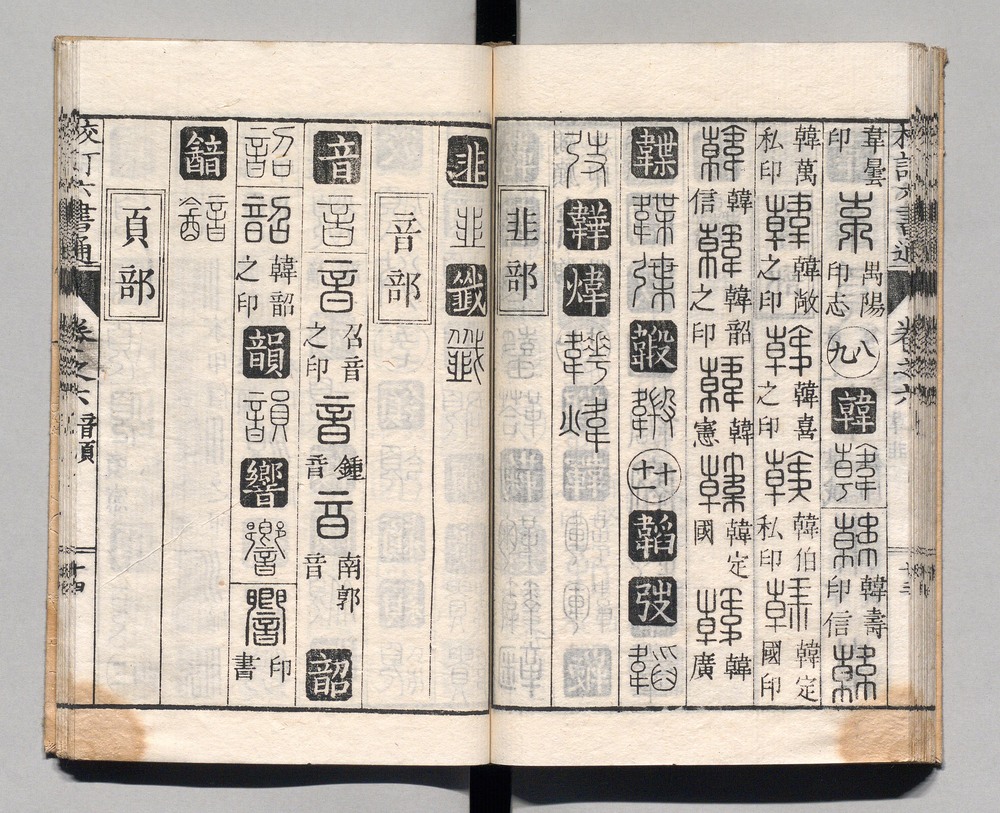 校訂六書通 卷之六 十三
韋曇印 韋 禺陽印志 八九 韓 韓 韓 韓壽印信 韓
韓萬私印 韓 韓敞之印 韓 韓喜之印 韓 韓伯私印 韓 韓定國印
韓 韓信 韓 韓韶之印 韓 韓憲 韓 韓定國 韓 韓廣
韘 韘 弽 十十一 韜 弢 韜
弢 韡 煒 韡 煒
韭部
韭 韭
音部
音 音 音 召音之印 音 鍾音 音 南郭音 韶
韶 韶 韓韶之印 韻 韻 響 響 響 印書
韽 韽
頁部
校訂六書通 卷之六 音頁 十四